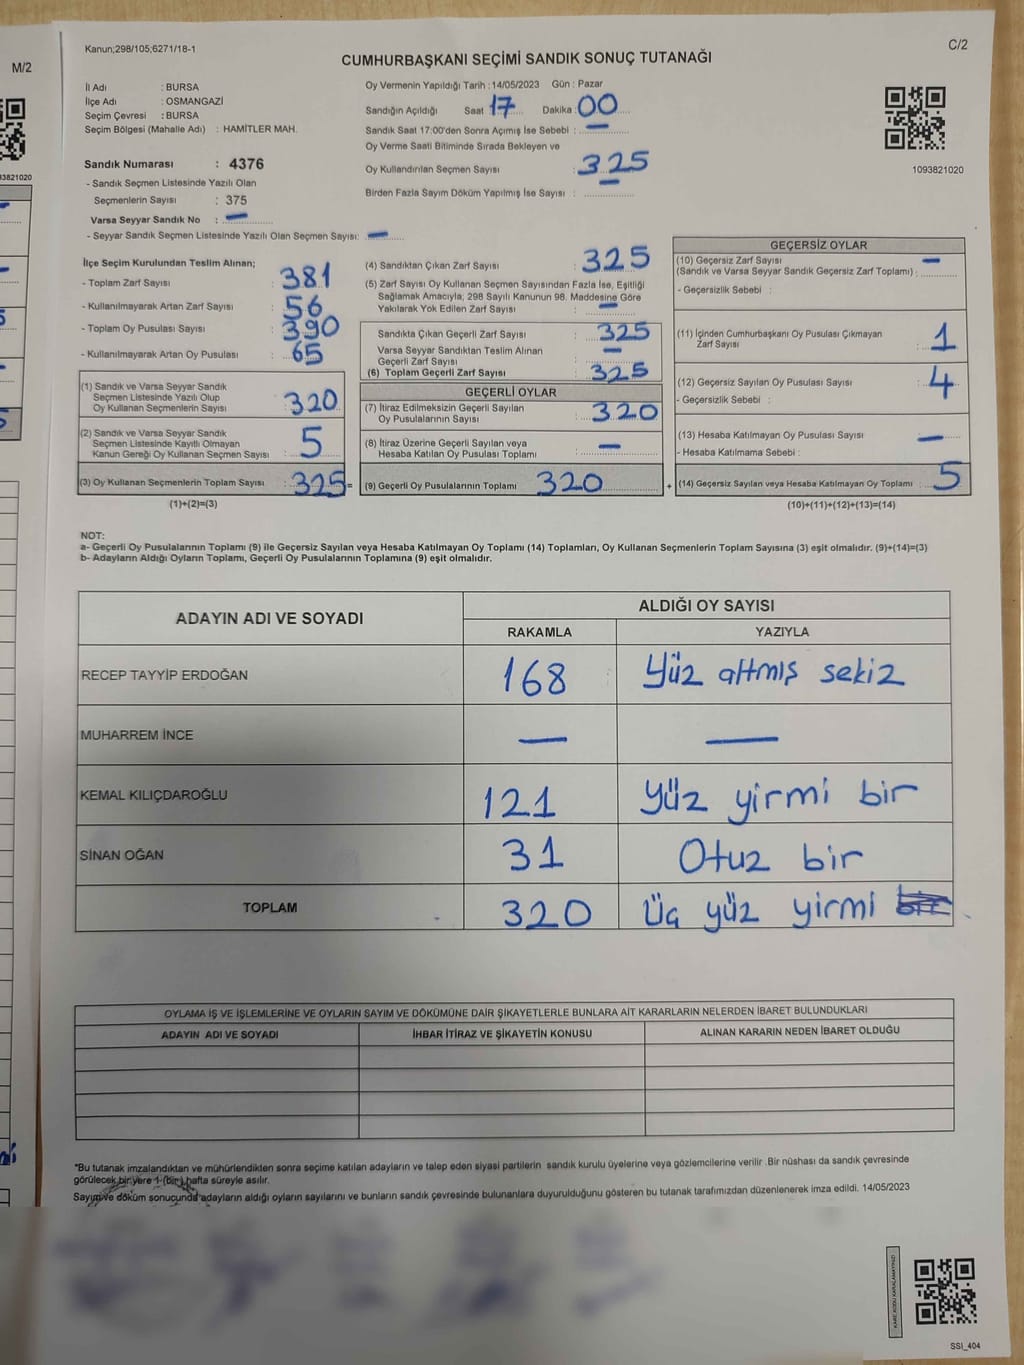 Kanun;298/105;6271/18-1
C/2
M/2
CUMHURBAŞKANI SEÇİMİ SANDIK SONUÇ TUTANAĞI
İl Adı : BURSA
İlçe Adı : OSMANGAZİ
Seçim Çevresi : BURSA
Seçim Bölgesi (Mahalle Adı) : HAMİTLER MAH.
Sandık Numarası : 4376
- Sandık Seçmen Listesinde Yazılı Olan
Seçmenlerin Sayısı : 375
Varsa Seyyar Sandık No : —
- Seyyar Sandık Seçmen Listesinde Yazılı Olan Seçmen Sayısı: —
Oy Vermenin Yapıldığı Tarih :14/05/2023 Gün : Pazar
Sandığın Açıldığı Saat 17 Dakika : 00
Sandık Saat 17:00'den Sonra Açımış İse Sebebi : —
Oy Verme Saati Bitiminde Sırada Bekleyen ve
Oy Kullandırılan Seçmen Sayısı : 325
Birden Fazla Sayım Döküm Yapılmış İse Sayısı : —
1093821020
93821020
İlçe Seçim Kurulundan Teslim Alınan;
- Toplam Zarf Sayısı : 381
- Kullanılmayarak Artan Zarf Sayısı : 56
- Toplam Oy Pusulası Sayısı : 390
- Kullanılmayarak Artan Oy Pusulası : 65
(1) Sandık ve Varsa Seyyar Sandık
Seçmen Listesinde Yazılı Olup
Oy Kullanan Seçmenlerin Sayısı : 320
(2) Sandık ve Varsa Seyyar Sandık
Seçmen Listesinde Kayıtlı Olmayan
Kanun Gereği Oy Kullanan Seçmen Sayısı : 5
(3) Oy Kullanan Seçmenlerin Toplam Sayısı : 325 =
(1)+(2)=(3)
(4) Sandıktan Çıkan Zarf Sayısı : 325
(5) Zarf Sayısı Oy Kullanan Seçmen Sayısından Fazla İse, Eşitliği
Sağlamak Amacıyla; 298 Sayılı Kanunun 98. Maddesine Göre
Yakılarak Yok Edilen Zarf Sayısı : —
Sandıkta Çıkan Geçerli Zarf Sayısı : 325
Varsa Seyyar Sandıktan Teslim Alınan
Geçerli Zarf Sayısı : —
(6) Toplam Geçerli Zarf Sayısı : 325
GEÇERLİ OYLAR
(7) İtiraz Edilmeksizin Geçerli Sayılan
Oy Pusulalarının Sayısı : 320
(8) İtiraz Üzerine Geçerli Sayılan veya
Hesaba Katılan Oy Pusulası Toplamı : —
(9) Geçerli Oy Pusulalarının Toplamı 320 +
GEÇERSİZ OYLAR
(10) Geçersiz Zarf Sayısı —
(Sandık ve Varsa Seyyar Sandık Geçersiz Zarf Toplamı) :
- Geçersizlik Sebebi :
(11) İçinden Cumhurbaşkanı Oy Pusulası Çıkmayan
Zarf Sayısı : 1
(12) Geçersiz Sayılan Oy Pusulası Sayısı : 4
- Geçersizlik Sebebi :
(13) Hesaba Katılmayan Oy Pusulası Sayısı : —
- Hesaba Katılmama Sebebi :
(14) Geçersiz Sayılan veya Hesaba Katılmayan Oy Toplamı : 5
(10)+(11)+(12)+(13)=(14)
NOT:
a- Geçerli Oy Pusulalarının Toplamı (9) ile Geçersiz Sayılan veya Hesaba Katılmayan Oy Toplamı (14) Toplamları, Oy Kullanan Seçmenlerin Toplam Sayısına (3) eşit olmalıdır. (9)+(14)=(3)
b- Adayların Aldığı Oyların Toplamı, Geçerli Oy Pusulalarının Toplamına (9) eşit olmalıdır.
ADAYIN ADI VE SOYADI
ALDIĞI OY SAYISI
RAKAMLA YAZIYLA
RECEP TAYYİP ERDOĞAN 168 Yüz altmış sekiz
MUHARREM İNCE — —
KEMAL KILIÇDAROĞLU 121 Yüz yirmi bir
SİNAN OĞAN 31 Otuz bir
TOPLAM 320 Üç yüz yirmi
OYLAMA İŞ VE İŞLEMLERİNE VE OYLARIN SAYIM VE DÖKÜMÜNE DAİR ŞİKAYETLERLE BUNLARA AİT KARARLARIN NELERDEN İBARET BULUNDUKLARI
ADAYIN ADI VE SOYADI İHBAR İTİRAZ VE ŞİKAYETİN KONUSU ALINAN KARARIN NEDEN İBARET OLDUĞU
*Bu tutanak imzalandıktan ve mühürlendikten sonra seçime katılan adayların ve talep eden siyasi partilerin sandık kurulu üyelerine veya gözlemcilerine verilir .Bir nüshası da sandık çevresinde
görülecek bir yere 1 (bir) hafta süreyle asılır.
Sayım ve döküm sonucunda adayların aldığı oyların sayılarını ve bunların sandık çevresinde bulunanlara duyurulduğunu gösteren bu tutanak tarafımızdan düzenlenerek imza edildi. 14/05/2023
KARE KODU KARALAMAYINIZ!
SSI_404